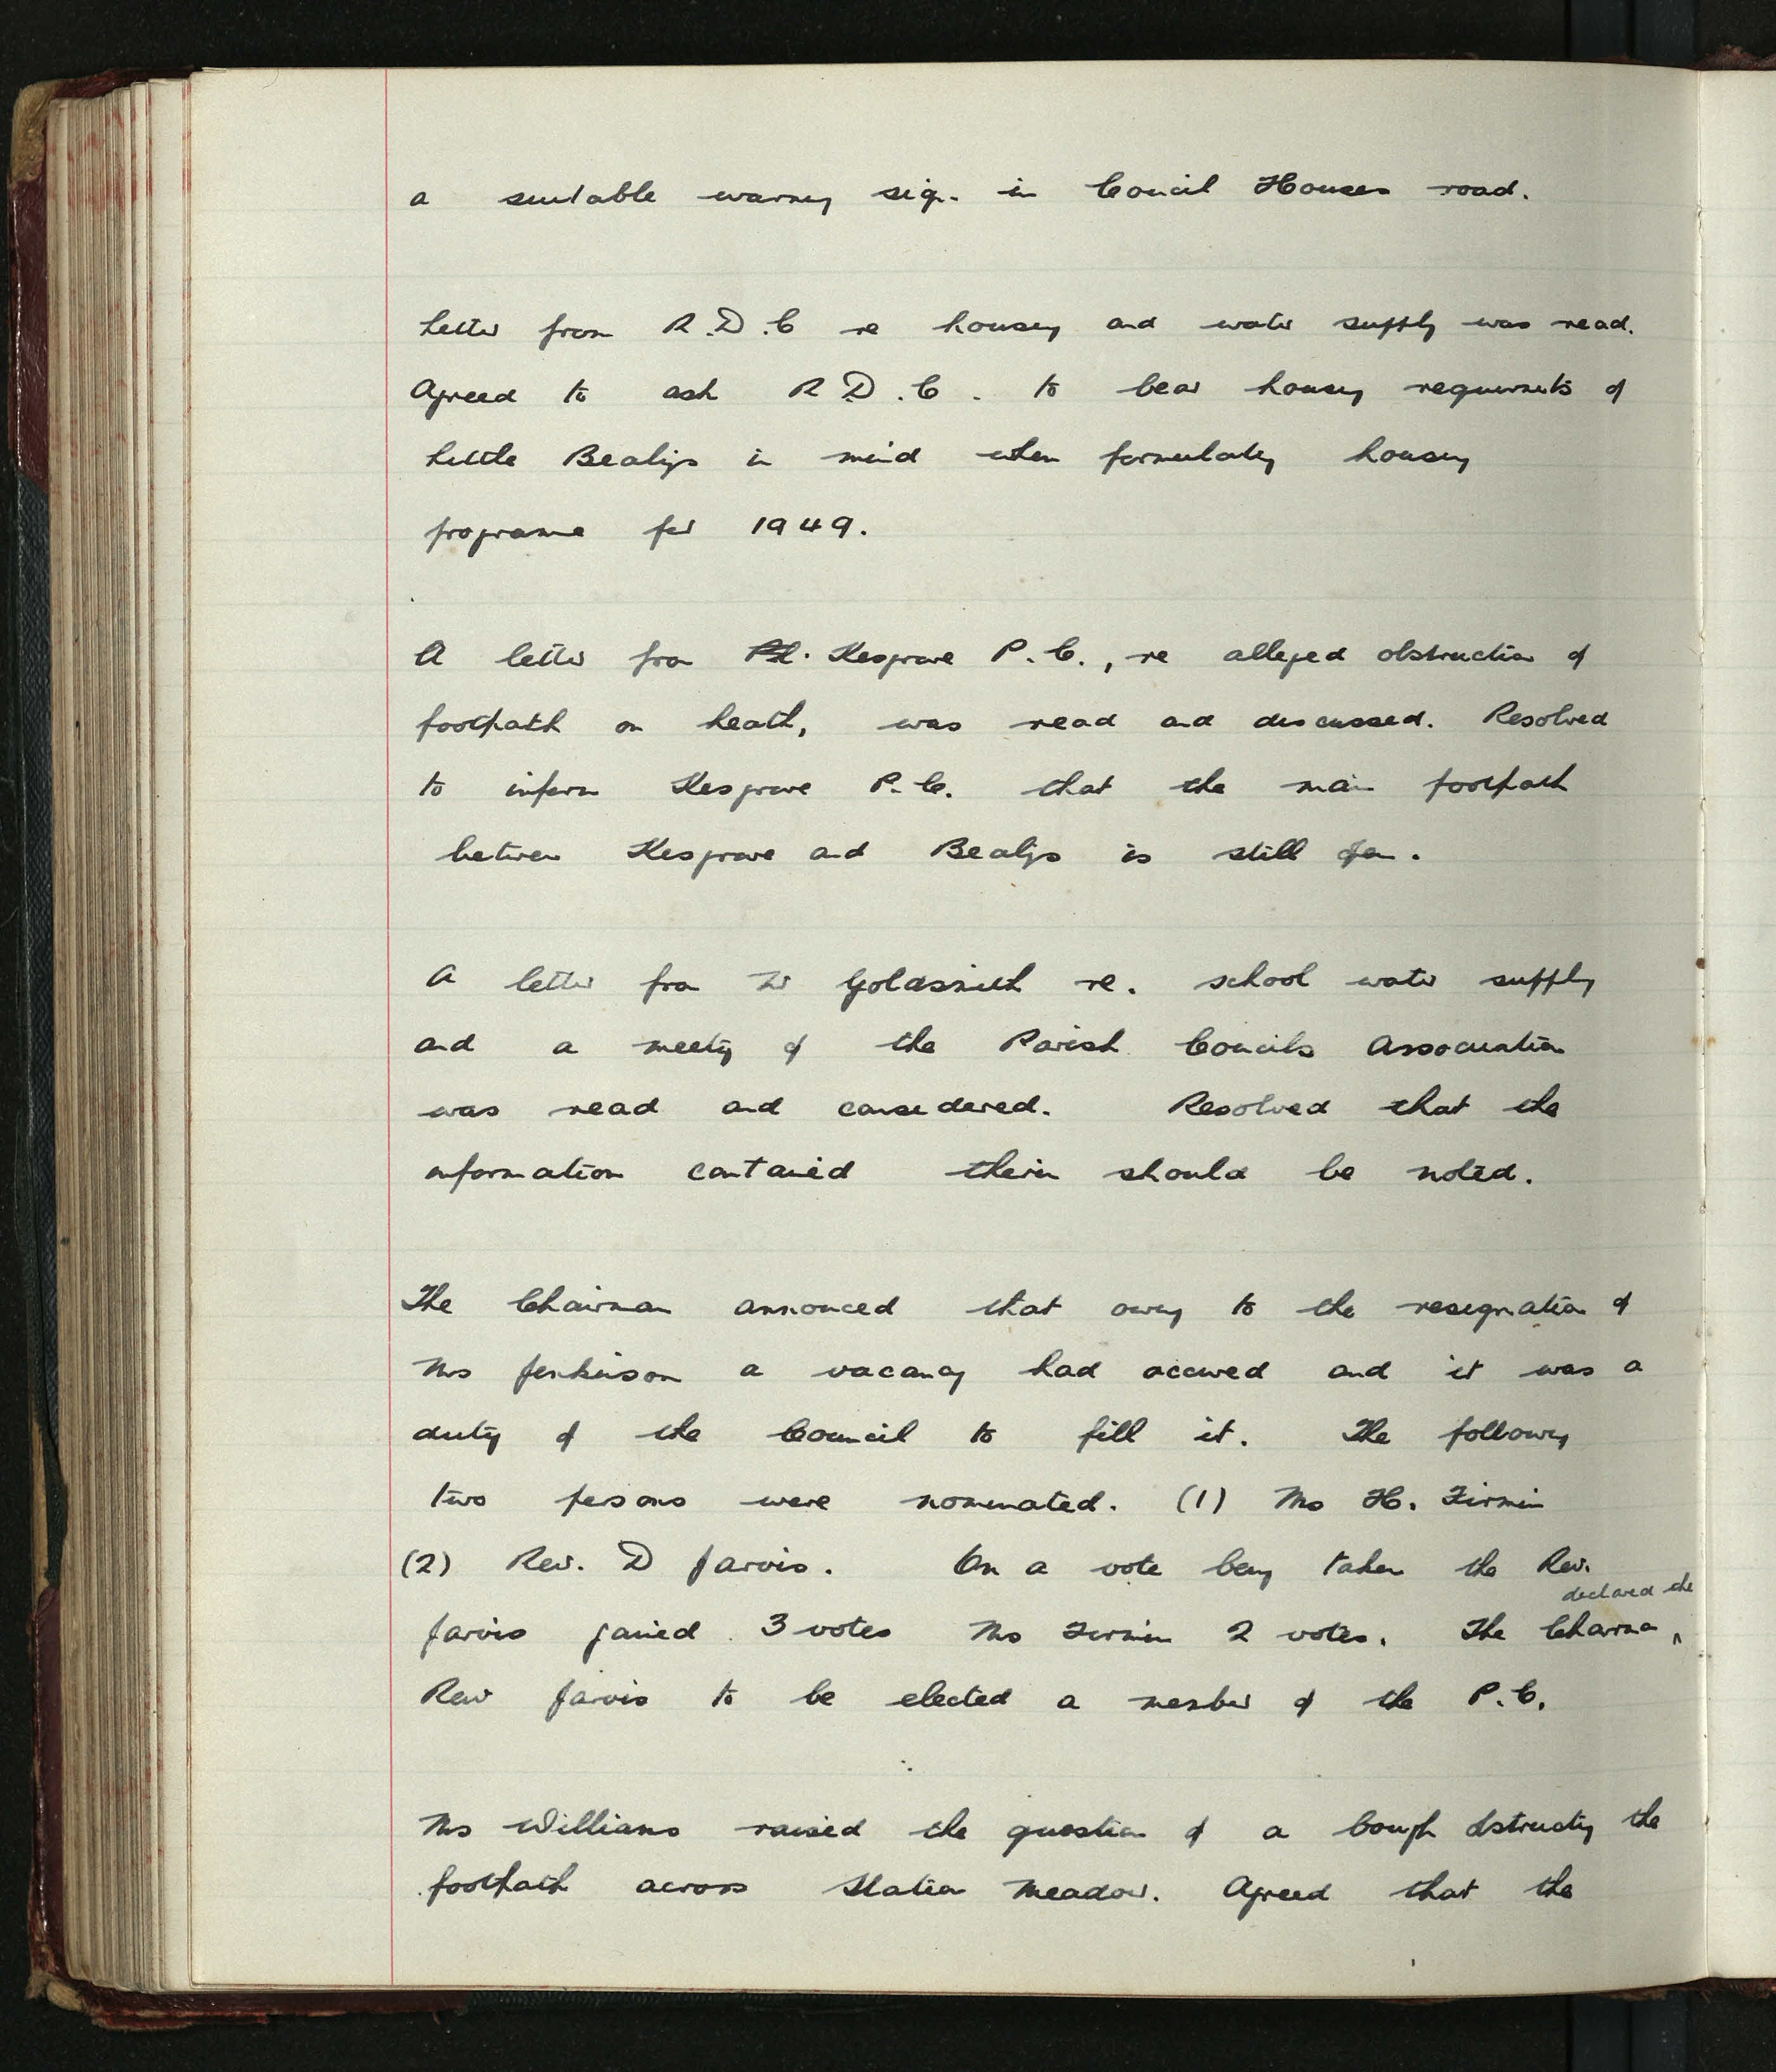 a suitable warning sign in Council Houses road.
Letter from R.D.C re housing and water supply was read.
Agreed to ask R.D.C. to bear housing requirements of
Little Bealings in mind when formulating housing
programme for 1949.
A letter from Kesgrave P.C., re alleged obstruction of
footpath on heath, was read and discussed. Resolved
to inform Kesgrave P.C. that the main footpath
between Kesgrave and Bealings is still open.
A letter from Goldsmith re. school water supply
and a meeting of the Parish Councils Association
was read and considered. Resolved that the
information contained therein should be noted.
The Chairman announced that owing to the resignation of
Mrs Jenkinson a vacancy had occurred and it was a
duty of the Council to fill it. The following
two persons were nominated. (1) Mrs H. Firmin
(2) Rev. D Jarvis. On a vote being taken the Rev.
Jarvis gained 3 votes Mrs Firmin 2 votes. The Chairman declared the
Rev Jarvis to be elected a member of the P.C.
Mrs Williams raised the question of a bough obstructing the
footpath across Station Meadow. Agreed that the